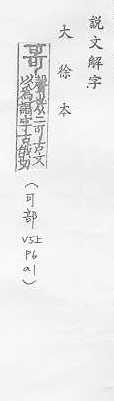 說文解字
大徐本
哥 聲也从二可古文
以爲謌字古俄切
(可部
V5上
P6
a1)